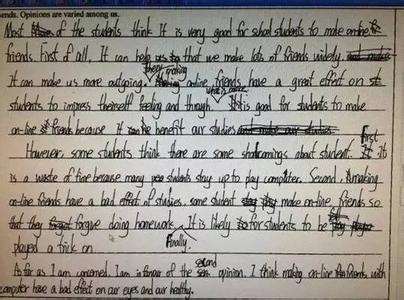 ends. Opinions are varied among us.
Most of the students think It is very good for school students to make online
friends. First of all, It can help us that we make lots of friends widely.
It can make us more outgoing. Then making online friends have a great effect on
students to impress theirself feeling and though. what's more It is good for students to make
on-line friends because It can benefit our studies
However, some students think there are some shortcomings about student. first It
is a waste of time because many students stay up to play computer. Second, making
on-line friends have a bad effect of studies. some student make on-line friends so
that they forgive doing homework. Finally It is likely for students to be
played a trick on
As far as I am concerned, I am in favour of the second opinion. I think making on-line friends with
computer have a bad effect on our eyes and our healthy.